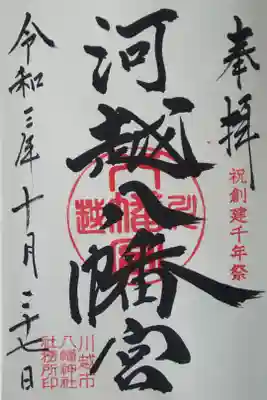 奉拝
祝創建千年祭
河越八幡宮
令和三年十月二十七日
川越市
八幡神社
社務所印